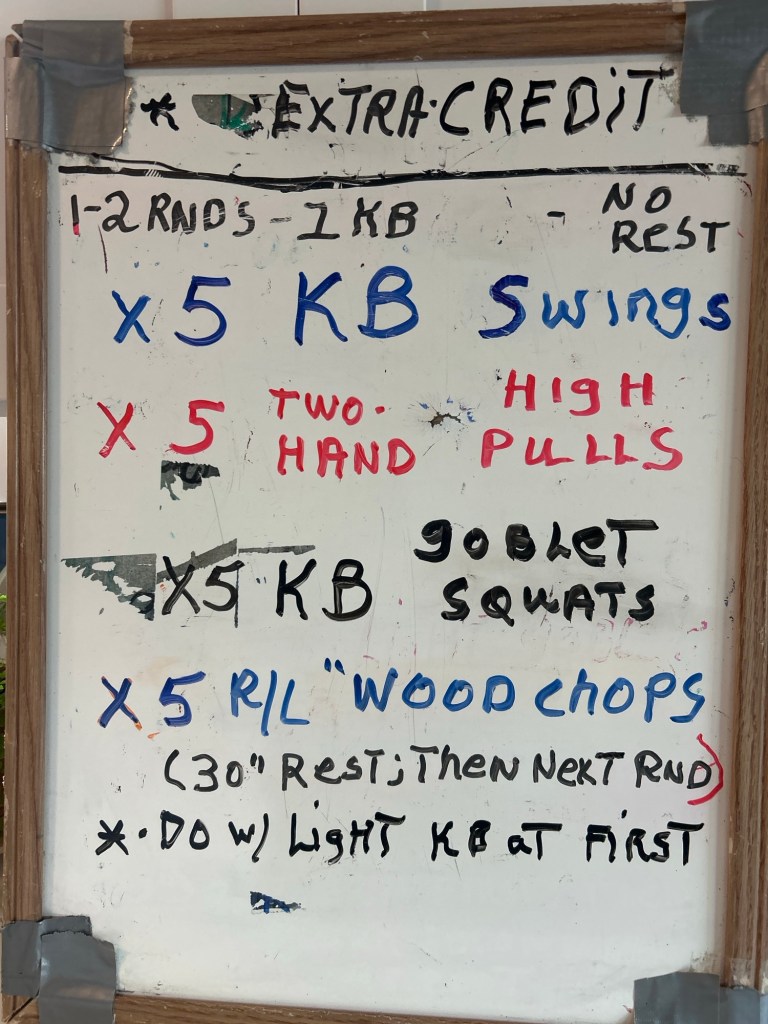 * EXTRA·CREDiT
1-2 RNDS - 1 KB - NO REST
X 5 KB Swings
X 5 TWO· HAND HigH PULLS
X5 KB gOBLeT SQUATS
X 5 R/L "WOOD chOPS
(30" ResT; Then NexT RND)
*· DO w/ LigHT KB aT FiRST